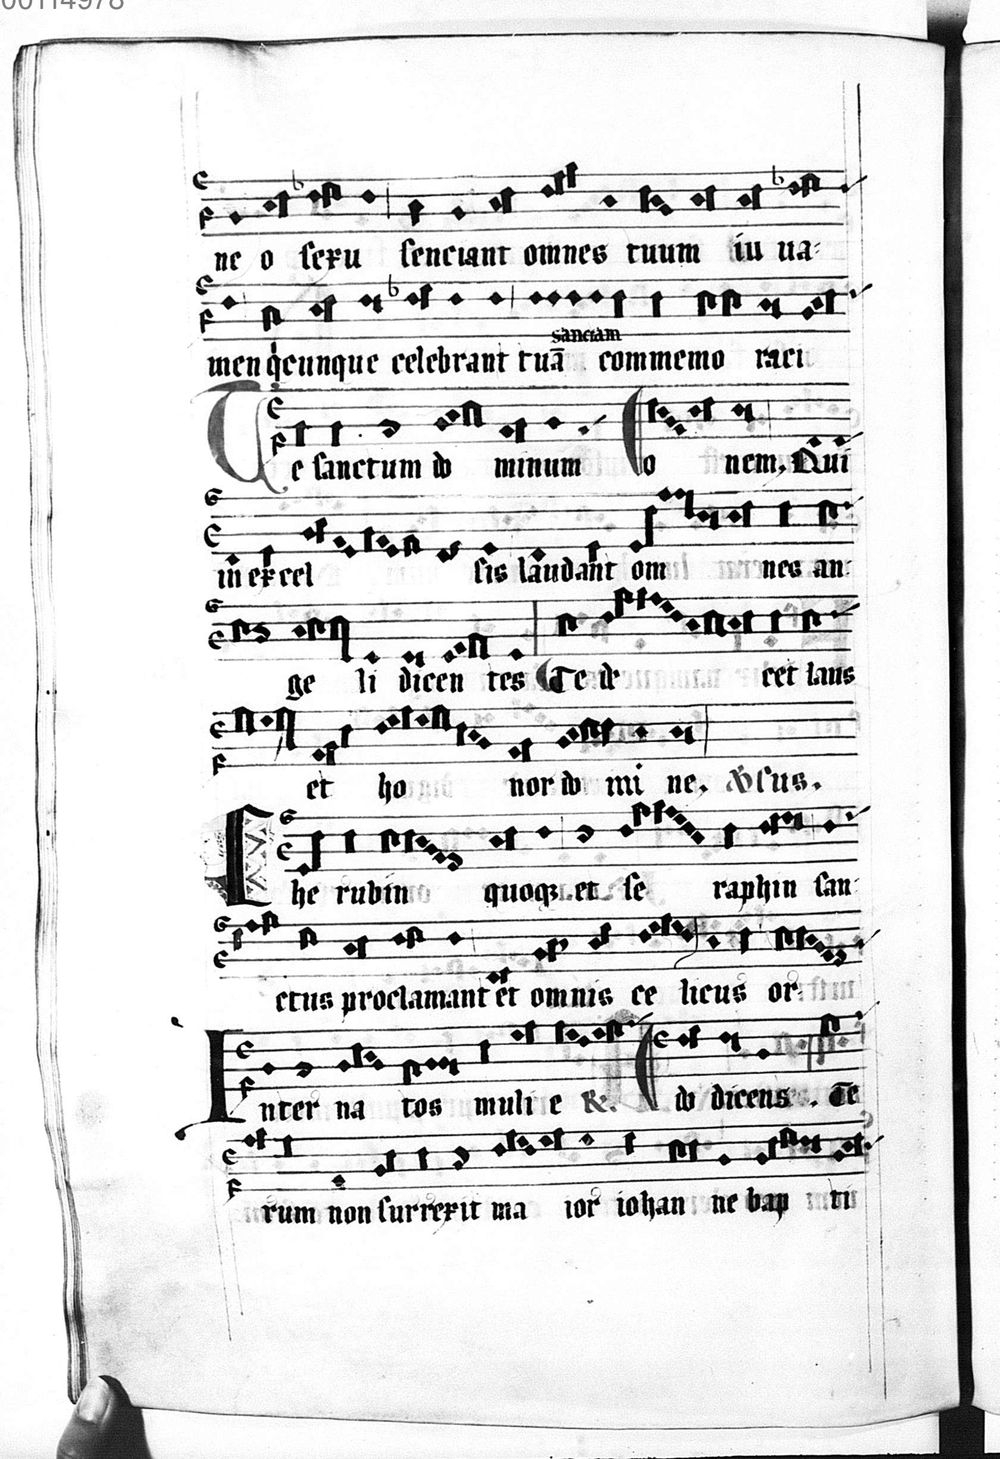 00114978
ne o sexu senciant omnes tuum iu ua-
sanctam
men q̇cunque celebrant tuā commemo raci
Te sanctum do minum o nem. Qui
in excel sis laudant om nes an-
ge li dicen tes Te de cet laus
et ho nor do mi ne. v̄sus.
Che rubin quoq3 et se raphin san-
ctus proclamant et omnis ce licus or-
Inter na tos mulie R. do dicens. Te
rum non surrexit ma ior iohan ne bap ti